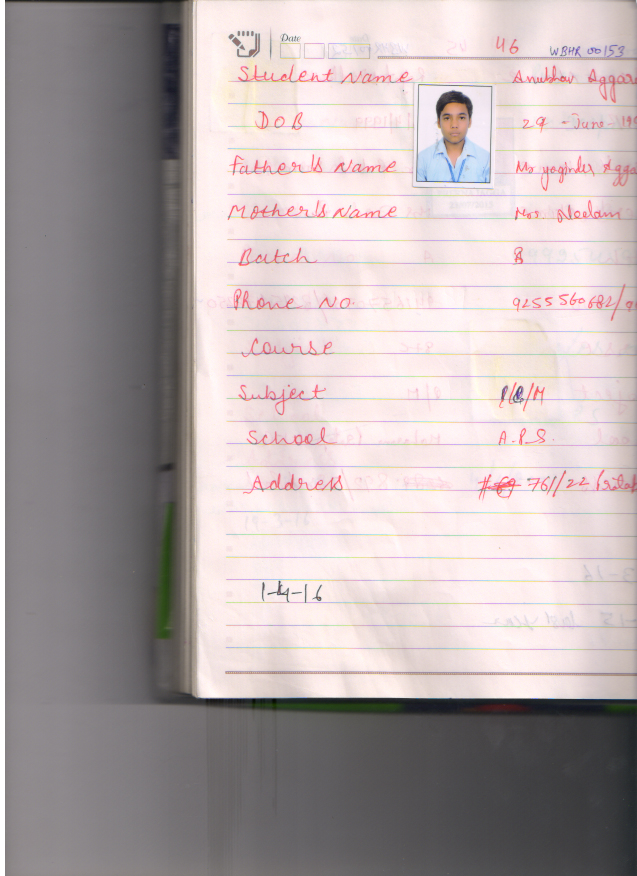 Date
46 WBHR 00153
Student Name Anubhav Aggar
DOB 29 - June - 199
Father's Name Mr yoginder Agga
Mother's Name Mrs. Neelam
Batch B
Phone No. 9255560682/9
Course
Subject P/C/M
School A.P.S.
Address # 761/22
1-4-16